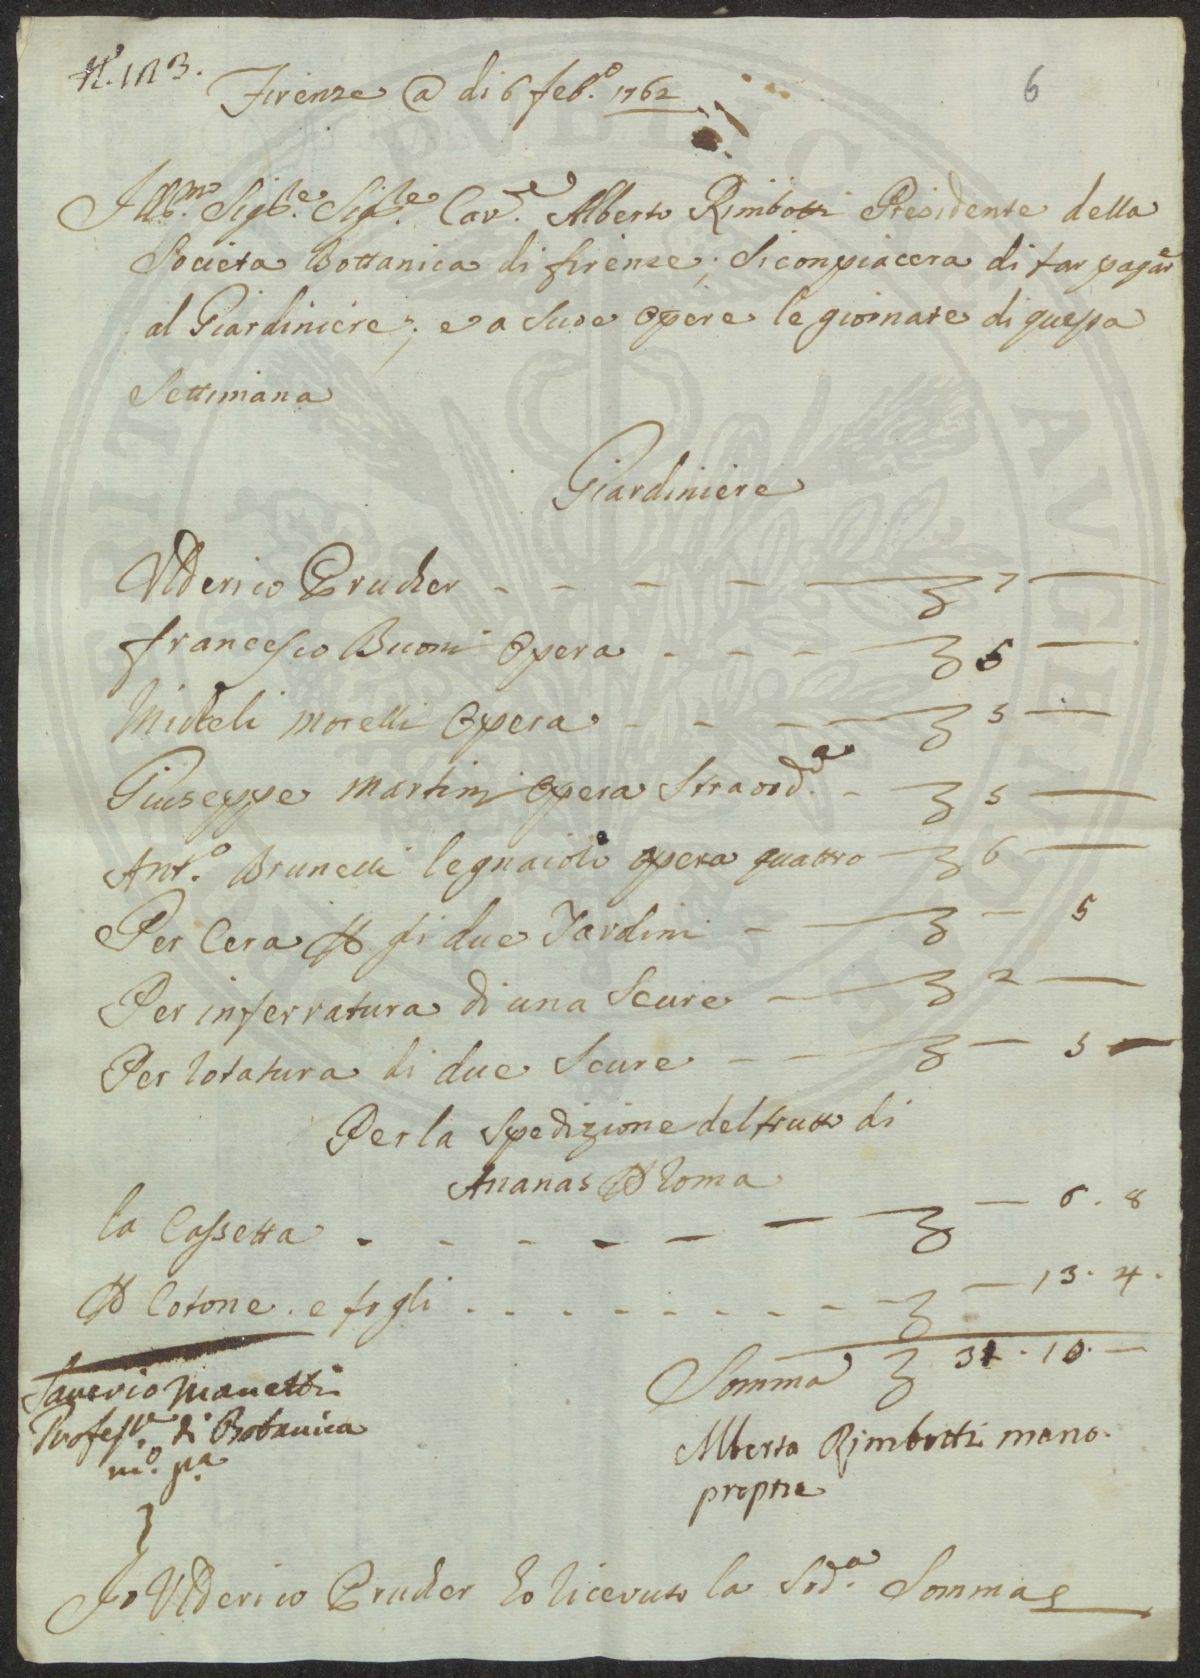 N.° 103.
6
Firenze @ di 6 feb.° 1762
Ill.mo Sig.re Sig.re Cav.re Alberto Rimbotti Presidente della
Societa Bottanica di firenze; Si conpiacera di far pagare
al Giardiniere; e a Sue Opere le giornate di questa
Settimana
Giardiniere
Ulderico Prucher - - - - 7 —
francesco Buoni Opera - - - 5 —
Micheli morelli Opera - - - 5 —
Giuseppe Martini Opera Straord.a - 5 —
Ant.° Brunelli legnaiolo opera quattro 6 —
Per Cera di due Jardini - — 5
Per inferratura di una Scure - 2 —
Per Rotatura di due Scure - - — 5 —
Per la Spedizione del frutto di
Ananas Roma
la Cassetta - - - - - — 6. 8
Cotone. e fogli - - - - - — 13. 4.
Somma 31. 10. —
Saverio Manetti
Profess.re di Botanica
m.° p.a
Alberto Rimbotti mano
propria
Io Ulderico Prucher ho Ricevuto la Sod.a Somma